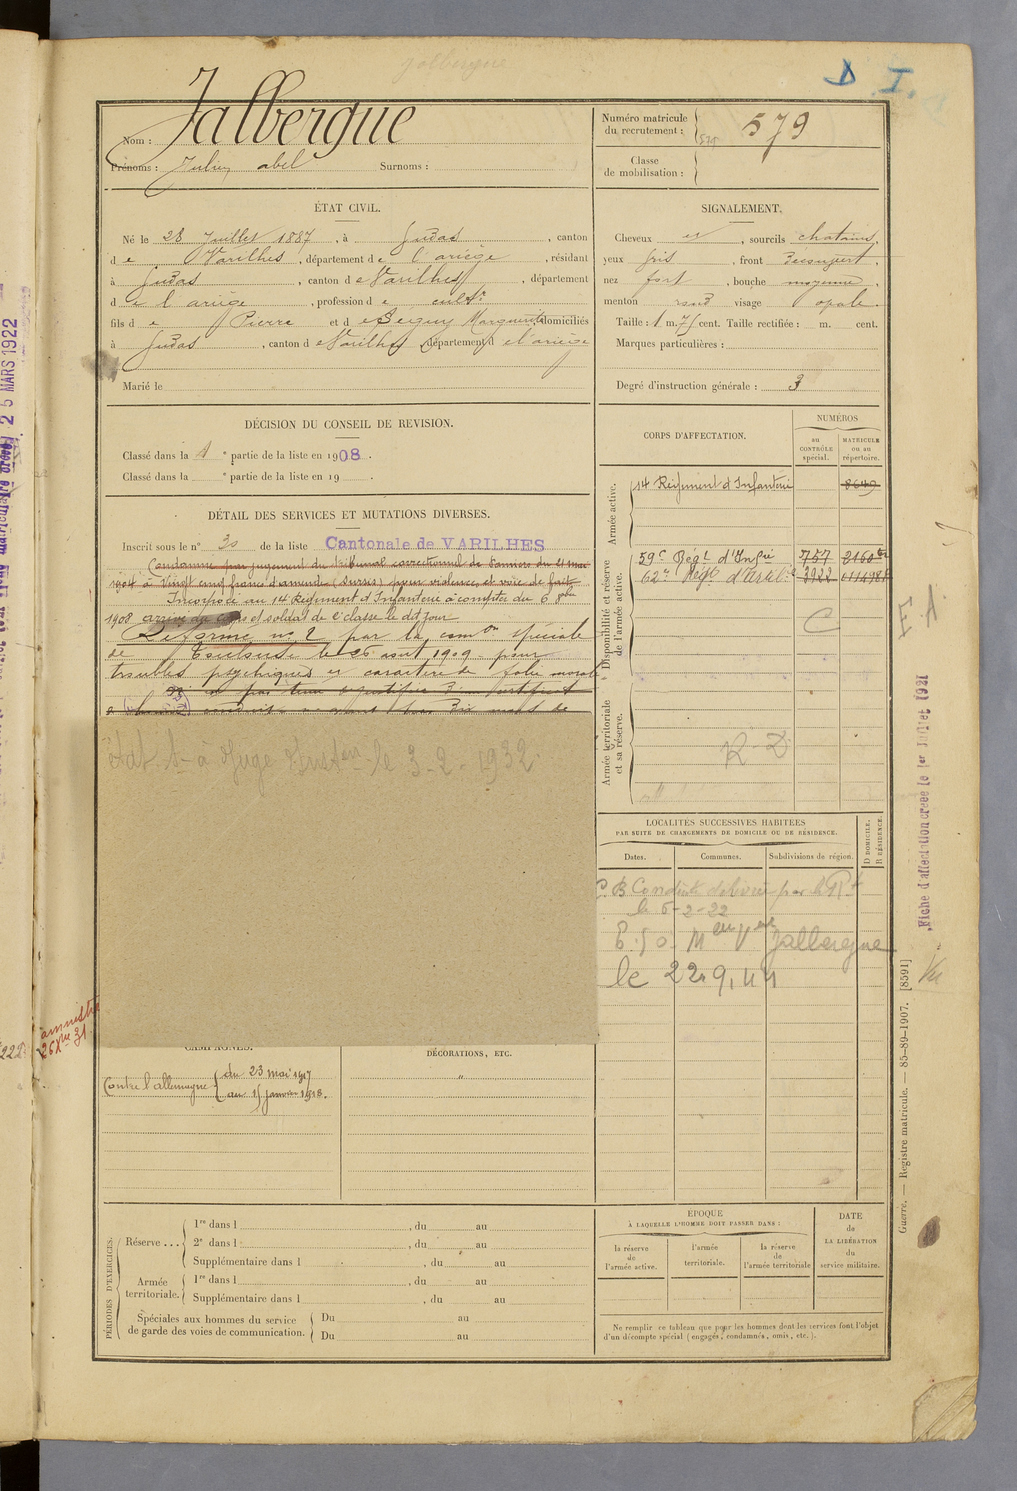 Jalbergue
D. I.
Nom : Jalbergue
Prénoms : Julien abel Surnoms :
Numéro matricule du recrutement : 579
Classe de mobilisation :
ÉTAT CIVIL.
Né le 28 Juillet 1887, à Gudas, canton
de Varilhes, département de l'ariège, résidant
à Gudas, canton de Varilhes, département
de l'ariège, profession de cultr
fils de Pierre et de Seguy Marguerite domiciliés
à Gudas, canton de Varilhes, département de l'ariège
Marié le
SIGNALEMENT.
Cheveux et, sourcils chatains,
yeux gris, front découvert,
nez fort, bouche moyenne,
menton rond visage ovale.
Taille : 1 m. 75 cent. Taille rectifiée : m. cent.
Marques particulières :
Degré d'instruction générale : 3
DÉCISION DU CONSEIL DE REVISION.
Classé dans la 1e partie de la liste en 1908.
Classé dans la e partie de la liste en 19 .
DÉTAIL DES SERVICES ET MUTATIONS DIVERSES.
Inscrit sous le n° 30 de la liste Cantonale de VARILHES
Condamné par jugement du tribunal correctionnel de Pamiers du 21 mai
1904 à Vingt cinq francs d'amende (Sursis) pour violences et voie de fait
Incorporé au 14 Régiment d'Infanterie à compter du 6 8bre
1908 arrivé au corps et soldat de 2e classe le dit jour
Réformé no 2 par la comon spéciale
de Toulouse le 26 aout 1909 pour
troubles psychiques et caractère de folie morale
état S- à Juge Inston le 3-2-1932.
CORPS D'AFFECTATION.
NUMÉROS
au CONTRÔLE spécial.
MATRICULE ou au répertoire.
Armée active.
14 Régiment d'Infanterie 8649
Disponibilité et réserve de l'armée active.
59e Régt d'Infie 757 2160
62e Régt d'Artillie 3922
C
Armée territoriale et sa réserve.
R-D
LOCALITÉS SUCCESSIVES HABITÉES
PAR SUITE DE CHANGEMENTS DE DOMICILE OU DE RÉSIDENCE.
Dates. Communes. Subdivisions de région.
D DOMICILE. R RÉSIDENCE.
C. B Conduite délivré par le Rt
le 6-2-22
Jalbergue
le 22.9.44
CAMPAGNES.
Contre l'allemagne du 23 mai 1917
au 15 janvier 1918.
DÉCORATIONS, ETC.
"
PÉRIODES D'EXERCICES.
Réserve ...
1re dans l , du au
2e dans l , du au
Supplémentaire dans l , du au
Armée territoriale.
1re dans l , du au
Supplémentaire dans l , du au
Spéciales aux hommes du service de garde des voies de communication.
Du au
Du au
ÉPOQUE
À LAQUELLE L'HOMME DOIT PASSER DANS :
la réserve de l'armée active.
l'armée territoriale.
la réserve de l'armée territoriale
DATE de LA LIBÉRATION du service militaire.
Ne remplir ce tableau que pour les hommes dont les services font l'objet
d'un décompte spécial (engagés, condamnés, omis, etc.).
Guerre. — Registre matricule. — 85-89-1907. [8591]
Fiche d'affectation créée le 1er Juillet 1921
25 MARS 1922
amnistie
26 Xbre 31